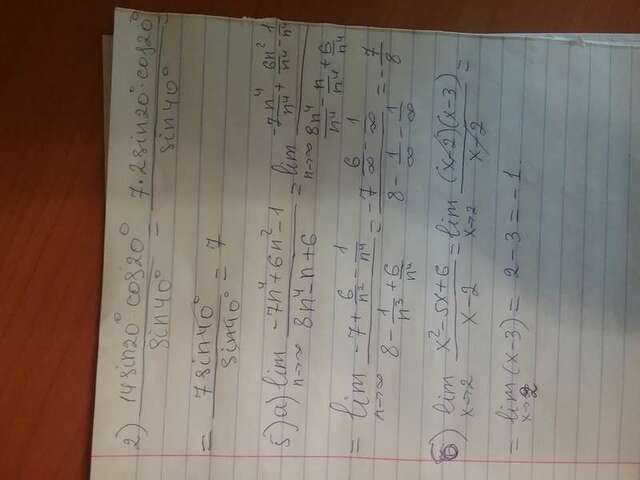 2) 14sin20° cos20° / sin40° = 7·2sin20°·cos20° / sin40° =
= 7sin40° / sin40° = 7
5) a) lim n→∞ (-7n⁴+6n²-1) / (8n⁴-n+6) = lim n→∞ (-7n⁴/n⁴ + 6n²/n⁴ - 1/n⁴) / (8n⁴/n⁴ - n/n⁴ + 6/n⁴)
= lim n→∞ (-7 + 6/n² - 1/n⁴) / (8 - 1/n³ + 6/n⁴) = (-7 6/∞ - 1/∞) / (8 - 1/∞ - 1/∞) = -7/8
б) lim x→2 (x²-5x+6) / (x-2) = lim x→2 (x-2)(x-3) / (x-2) =
= lim x→2 (x-3) = 2-3 = -1